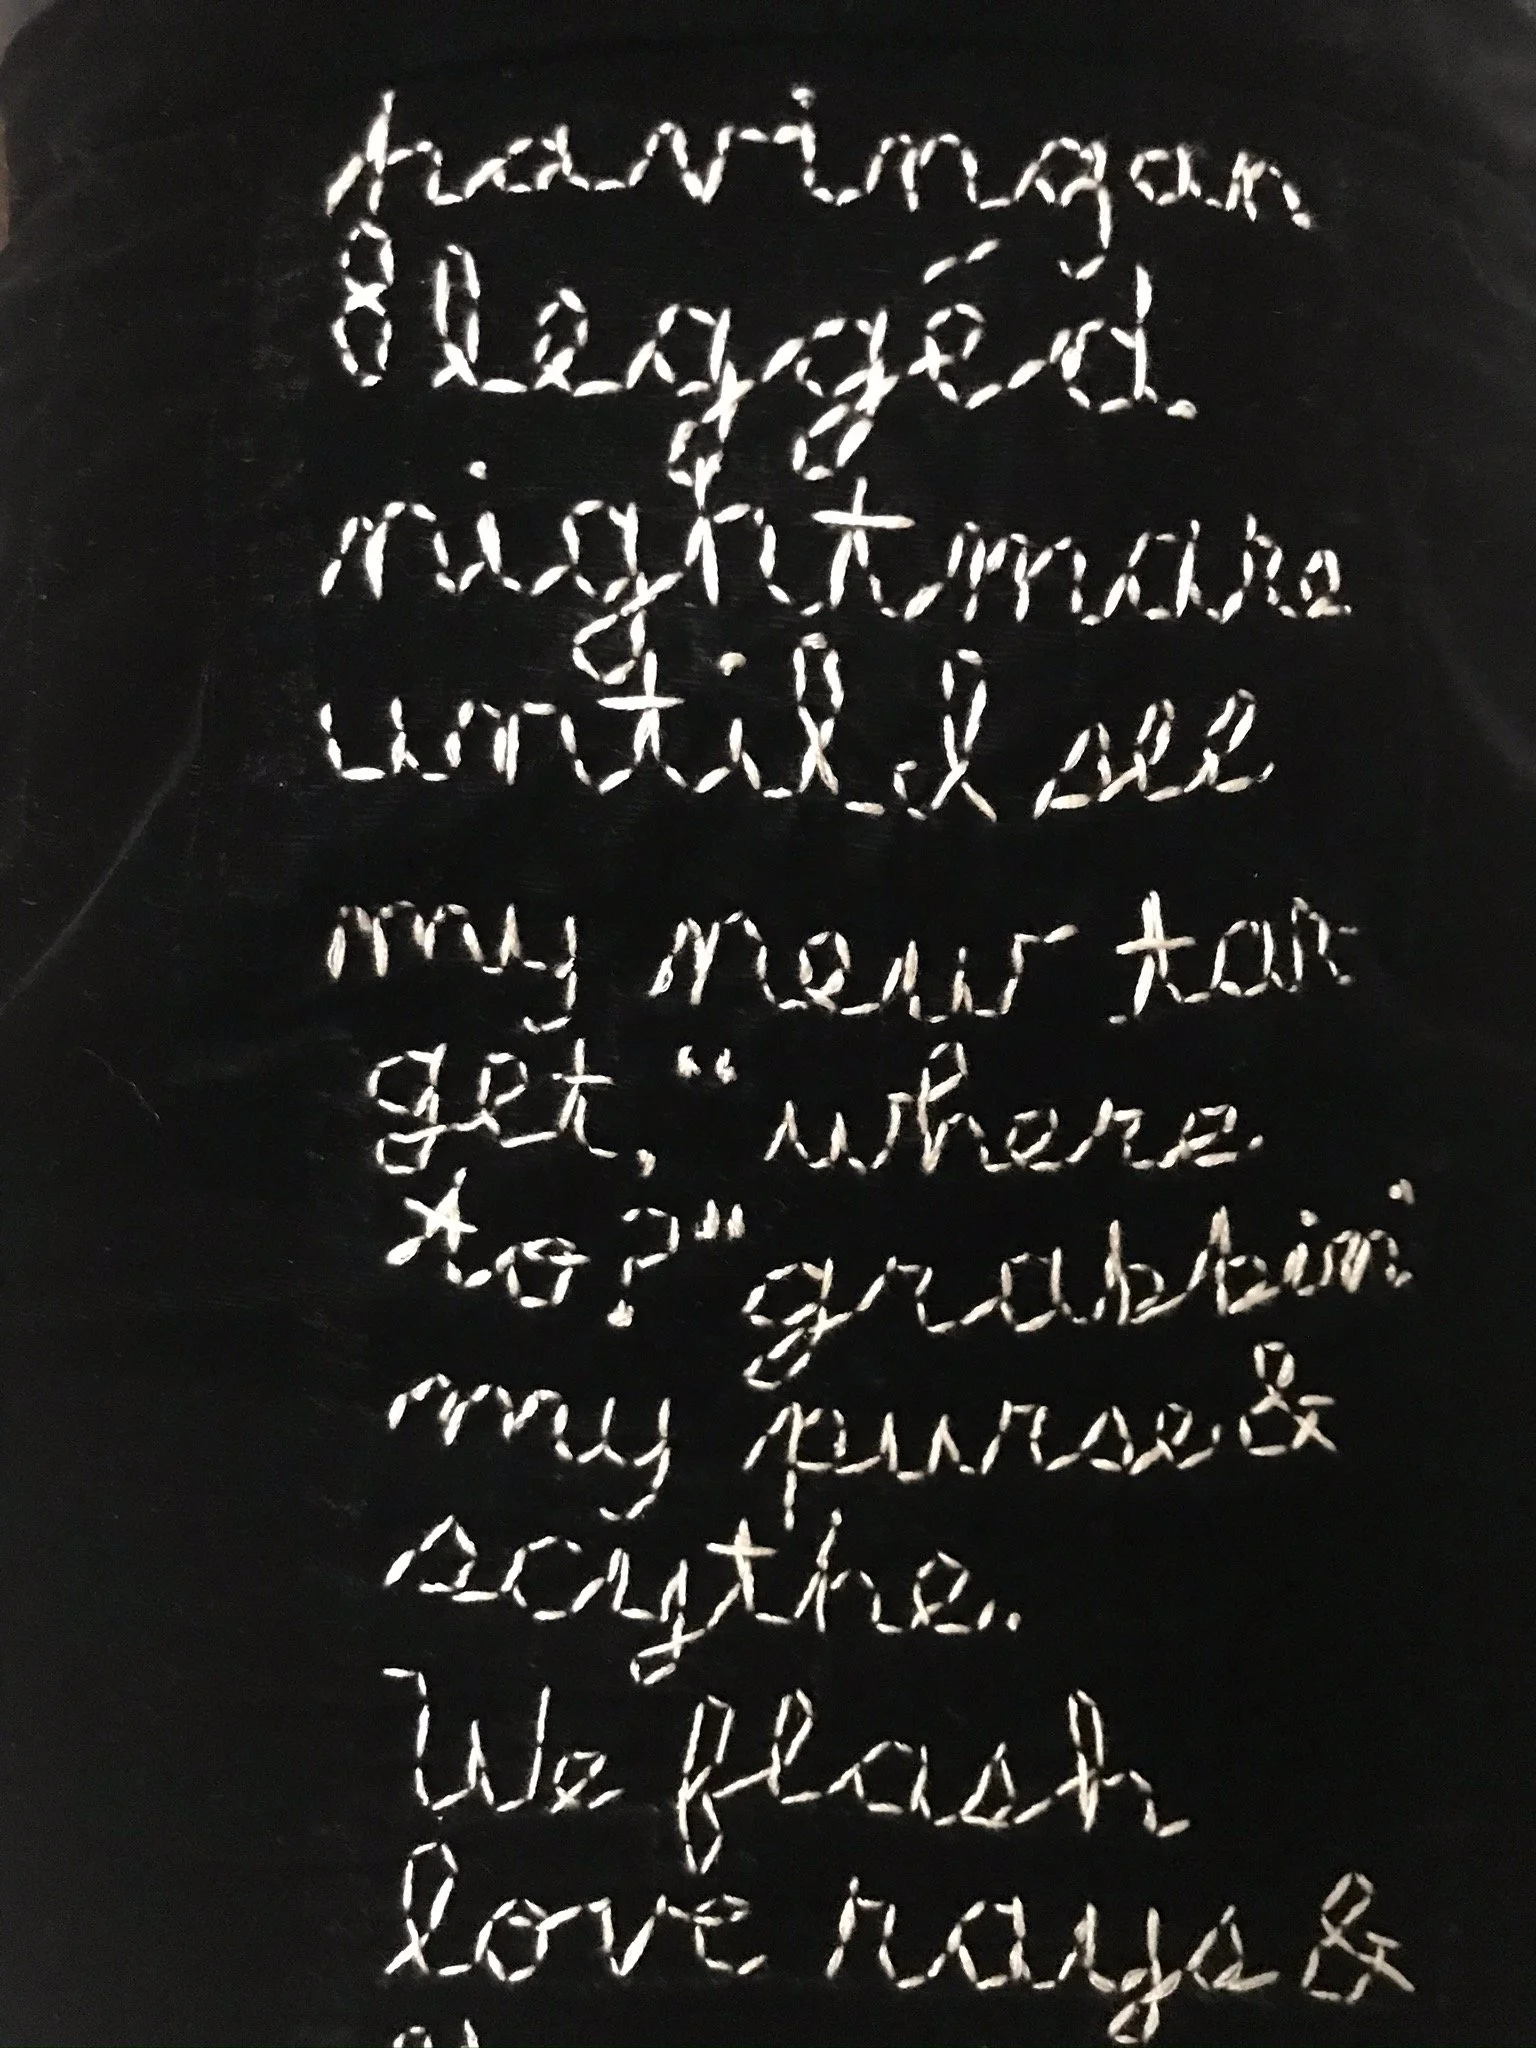 having an
8 leggéd
nightmare
until I see
my new tar
get, “where
to?" grabbin'
my purse &
scythe.
We flash
love rays &